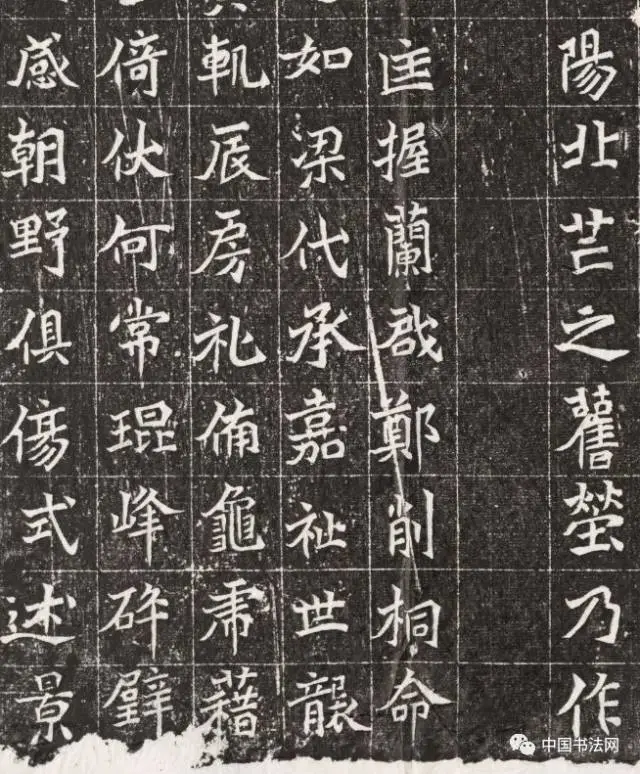 陽北芒之舊塋乃作
匡握蘭啟鄭削桐命
如梁代承嘉祉世襲
軌辰房礼備龜虎藉
倚伏何常琨峰碎璧
感朝野俱傷式述景
中国书法网